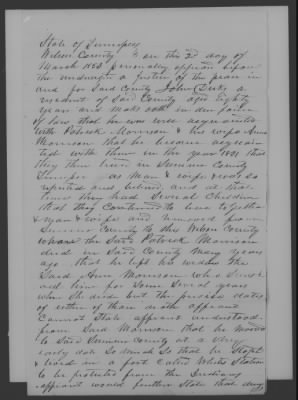 State of Tennessee
Wilson County } on this 2nd day of
March 1853 personally appeared before
the undersigned a Justice of the peace in
and for Said County John Dirks a
resident of Said County aged Eighty
years and makes oath in due form
of law that he was well acquainted
with Patrick Morrison & his wife Ann
Morrison that he became acquain
ted with them in the year 1791 that
they then lived in Sumner County
Tennessee as Man & wife and so
reputed and believed, and at that
time they had Several Children
that they Continued to live together
as man & wife and removed from
Sumner County to this Wilson County
where the Said Patrick Morrison
died in Said County many years
ago that he left a widow the
Said Ann Morrison who Survi
ved him for Some Several years
when She died but the precise dates
of either of their deaths affiant
Cannot State affiant understood
from Said Morrison that he moved
to Said Sumner County at a very
early date So much So that he Stopt
& lived in a fort Called Station
to be protected from the Indians
affiant would further State that